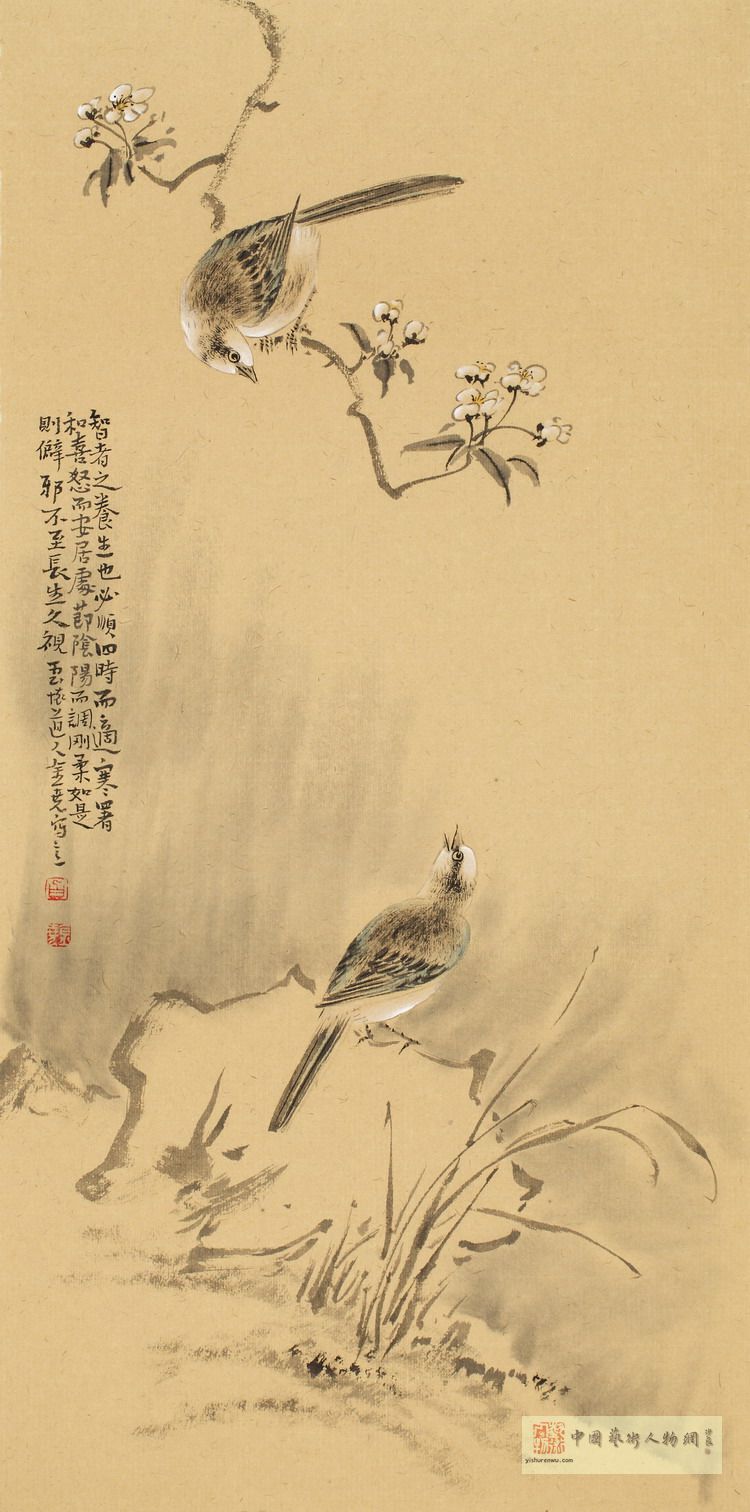 智者之養生也必順四時而適寒署
和喜怒而安居處節陰陽而調剛柔如是
則僻邪不至長生久視 道人 寫
中國藝術人物網
yishurenwu.com